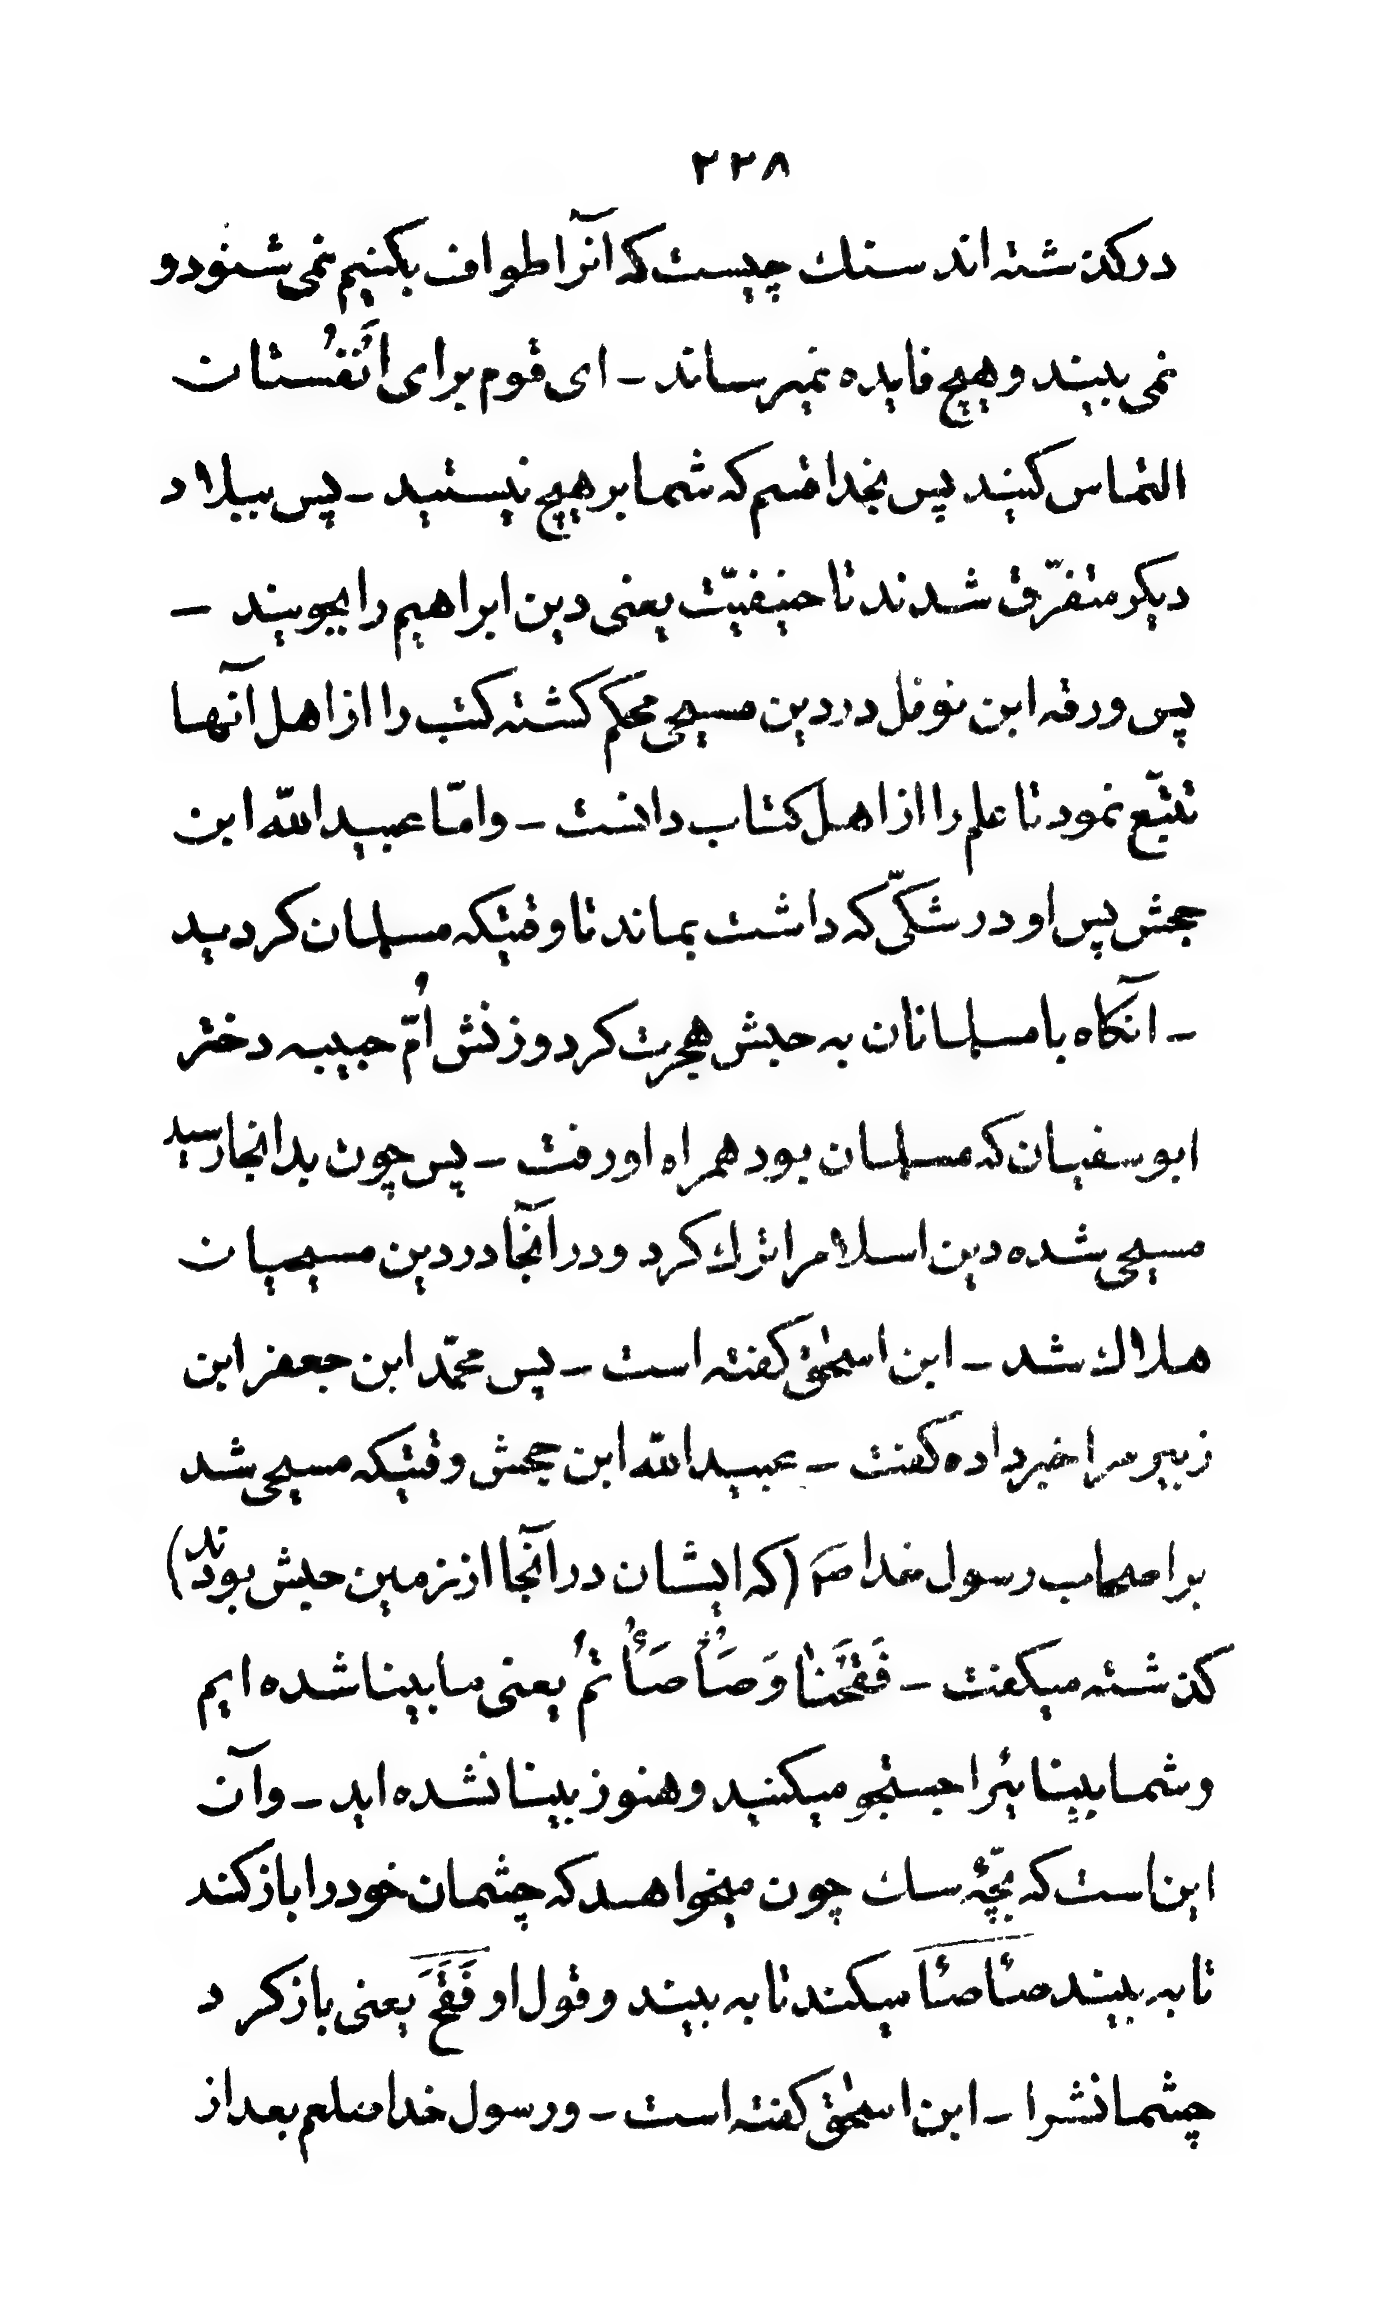 ۲۲۸
درکذشته اند سنك چیست که آنرا طواف بکنیم نمی شنود و
نمی بیند و هیچ فایده نمیرساند – ای قوم برای اَنْفُستان
التماس کنید پس بخدا قسم که شما بر هیچ نیستید – پس ببلاد
دیکر متفرّق شدند تا حنیفیّت یعنی دین ابراهیم را بجویند –
پس ورقه ابن نوفل در دین مسیحی محکم کشته کتب را از اهل آنها
تتبّع نمود تا علم را از اهل کتاب دانست – وامّا عبید الله ابن
جحش پس او در شکّی که داشت بماند تا وقتیکه مسلمان کردید
– آنکاه با مسلمانان به حبش هجرت کرد وزنش اُمّ حبیبه دختر
ابو سفیان که مسلمان بود همراه او رفت – پس چون بدانجا رسید
مسیحی شده دین اسلام را ترك کرد ودر آنجا در دین مسیحیان
هلاك شد – ابن اسحٰق کفته است – پس محمّد ابن جعفر ابن
زبیر مرا خبر داده کفت – عبید الله ابن جحش وقتیکه مسیحی شد
بر اصحاب رسول خدا صم (که ایشان در آنجا از زمین حبش بودند)
کذشته میکفت – فَقَّحْنَا وَصَأْصَأْتُمْ یعنی ما بینا شده ایم
و شما بینائیرا جستجو میکنید و هنوز بینا نشده اید – وآن
این است که بچّهٔ سك چون میخواهد که چشمان خود را باز کند
تا به بیند صأصأ میکند تا به بیند وقول او فَقَّحَ یعنی باز کرد
چشمانشرا – ابن اسحٰق کفته است – ورسول خدا صلعم بعد از